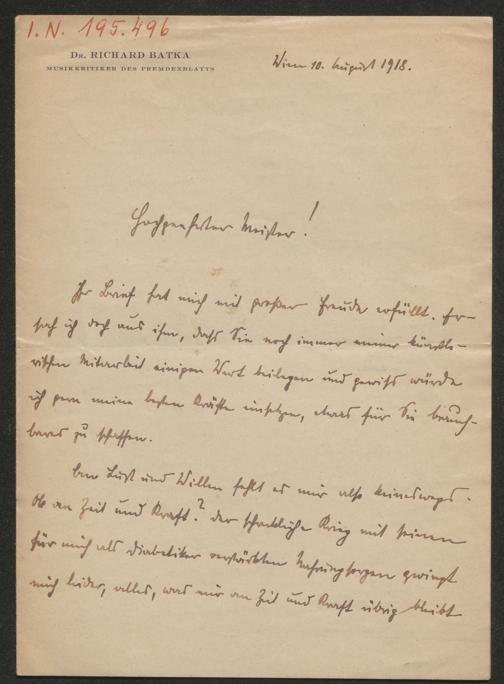 I. N. 195.496
DR. RICHARD BATKA
MUSIKKRITIKER DES FREMDENBLATTS
Wien 10. August 1918.
Hochverehrter Meister!
Ihr Brief hat mich mit großer Freude erfüllt. Er-
sah ich doch aus ihm, daß Sie noch immer meiner künstle-
rischen Mitarbeit einigen Wert beilegen und gewiß würde
ich gern meine besten Kräfte einsetzen, etwas für Sie brauch-
bares zu schaffen.
An Lust und Willen fehlt es mir also keineswegs.
Ob an Zeit und Kraft? Der schreckliche Krieg mit seinen
für mich als Diabetiker verstärkten Nahrungssorgen zwingt
mich leider, alles, was mir an Zeit und Kraft übrig bleibt